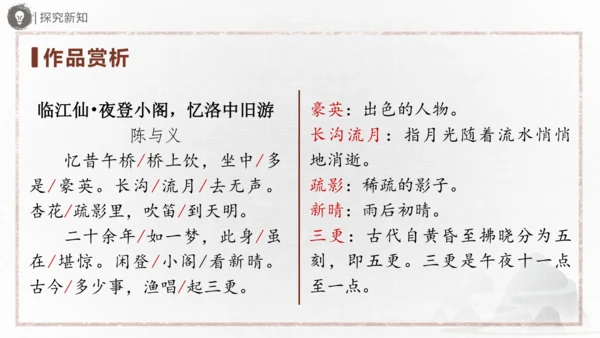 探究新知
作品赏析
临江仙•夜登小阁，忆洛中旧游
陈与义
忆昔午桥/桥上饮，坐中/多
是/豪英。长沟/流月/去无声。
杏花/疏影里，吹笛/到天明。
二十余年/如一梦，此身/虽
在/堪惊。闲登/小阁/看新晴。
古今/多少事，渔唱/起三更。
豪英：出色的人物。
长沟流月：指月光随着流水悄悄
地消逝。
疏影：稀疏的影子。
新晴：雨后初晴。
三更：古代自黄昏至拂晓分为五
刻，即五更。三更是午夜十一点
至一点。